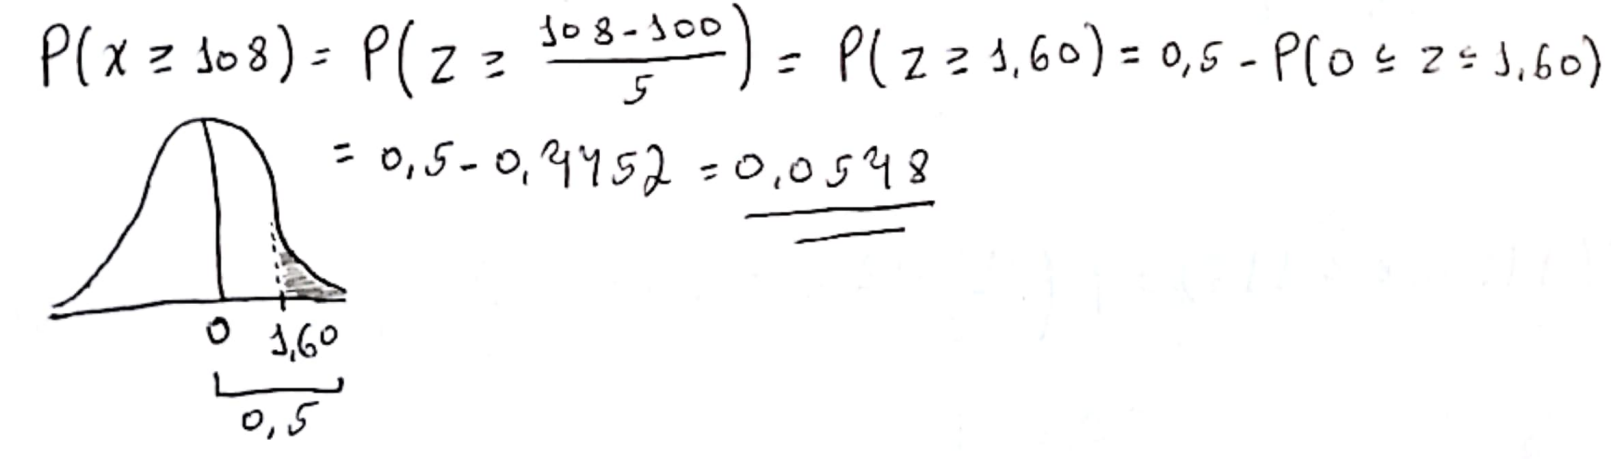 P(x ≥ 108) = P(z ≥ (108-100)/5) = P(z ≥ 1,60) = 0,5 - P(0 ≤ z ≤ 1,60)
= 0,5 - 0,4452 = 0,0548
0 1,60
0,5